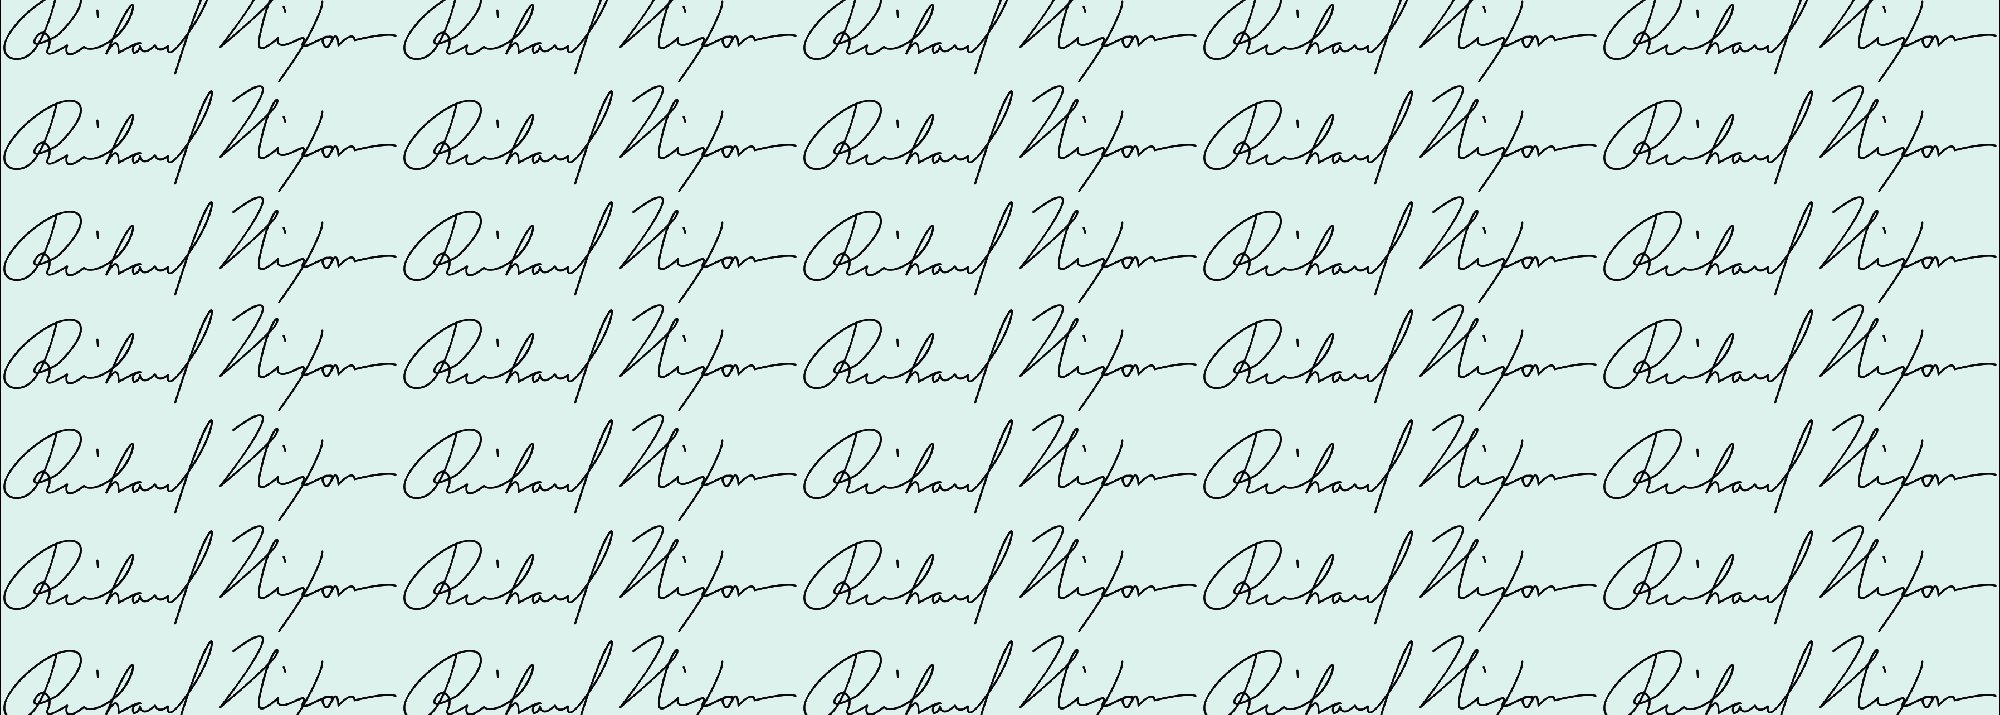 Richard Nixon Richard Nixon Richard Nixon Richard Nixon Richard Nixon
Richard Nixon Richard Nixon Richard Nixon Richard Nixon Richard Nixon
Richard Nixon Richard Nixon Richard Nixon Richard Nixon Richard Nixon
Richard Nixon Richard Nixon Richard Nixon Richard Nixon Richard Nixon
Richard Nixon Richard Nixon Richard Nixon Richard Nixon Richard Nixon
Richard Nixon Richard Nixon Richard Nixon Richard Nixon Richard Nixon
Richard Nixon Richard Nixon Richard Nixon Richard Nixon Richard Nixon